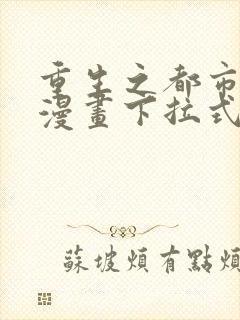 重生之都市
漫畫下拉式
蘇坡煩有點煩